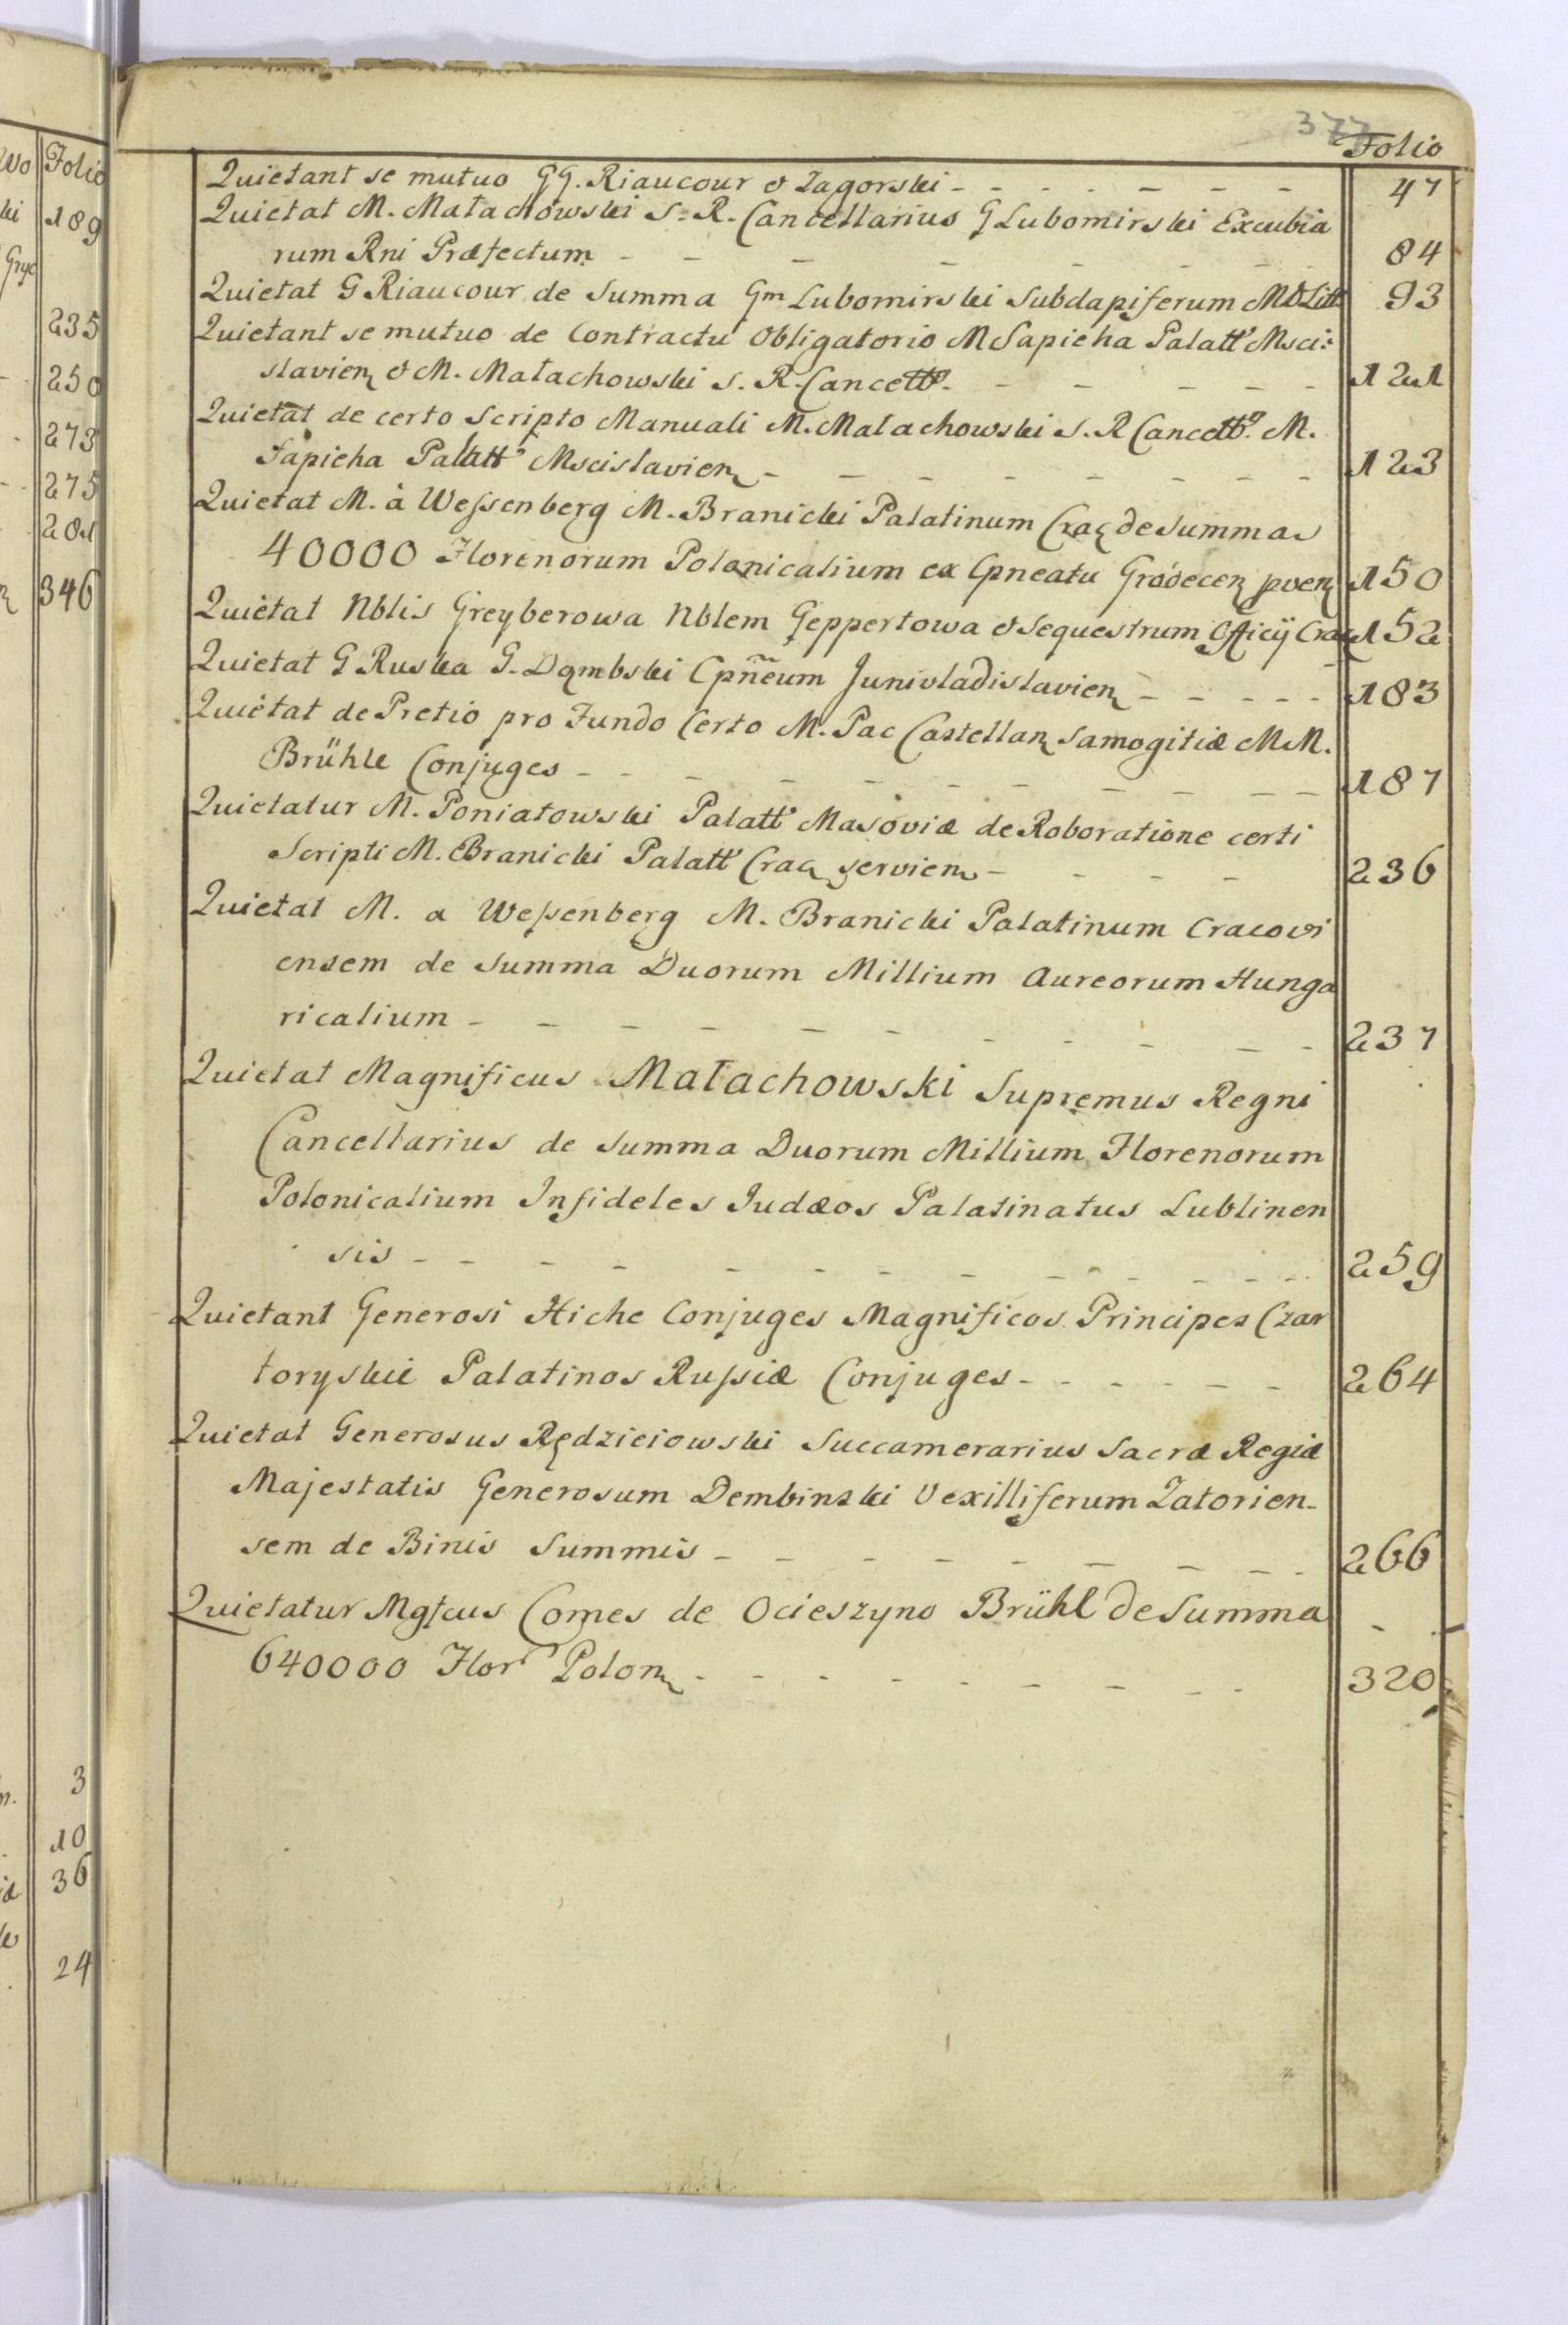 377
Folio
Quietant se mutuo GG. Riaucour & Zagorski - - - - - - - 47
Quietat M. Małachowski S. R. Cancellarius G Lubomirski Excubia
rum Rni Præfectum - - - - - - - 84
Quietat G Riaucour de Summa Gm Lubomirski Subdapiferum MDLitt 93
Quietant se mutuo de Contractu Obligatorio M Sapieha Palatt Msci:
slavien & M. Małachowski S. R. Cancell - - - - - 121
Quietat de certo Scripto Manuali M. Małachowski S. R Cancell. M.
Sapieha Palatt Mscislavien - - - - - - - 123
Quietat M. à Wessenberg M. Branicki Palatinum Crac de Summa
40000 Florenorum Polonicalium ex Cpneatu Grodecen pven 150
Quietat Nblis Greyberowa Nblem Geppertowa & Sequestrum Officij Crac 152
Quietat G Ruska G. Dąmbski Cpñeum Junivladislavien - - - - - 183
Quietat de Pretio pro Fundo Certo M. Pac Castellan Samogitiæ MM.
Brühle Conjuges - - - - - - - - - - 187
Quietatur M. Poniatowski Palatt Masoviæ de Roboratione certi
Scripti M. Branicki Palatt Crac servien - - - - 236
Quietat M. a Wessenberg M. Branicki Palatinum Cracovi
ensem de Summa Duorum Millium Aureorum Hunga
ricalium - - - - - - - - - - - 237
Quietat Magnificus Małachowski Supremus Regni
Cancellarius de Summa Duorum Millium Florenorum
Polonicalium Infideles Judæos Palatinatus Lublinen
sis - - - - - - - - - - - - - 259
Quietant Generosi Hiche Conjuges Magnificos Principes Czar
toryskie Palatinos Russiæ Conjuges - - - - - - 264
Quietat Generosus Rędzieiowski Succamerarius Sacræ Regiæ
Majestatis Generosum Dembinski Vexilliferum Zatorien-
sem de Binis Summis - - - - - - - - 266
Quietatur Mgfcus Comes de Ocieszyno Brühl de Summa
640000 Flor Polon - - - - - - - - - 320
Folio
189
235
250
273
275
281
346
3
10
36
24